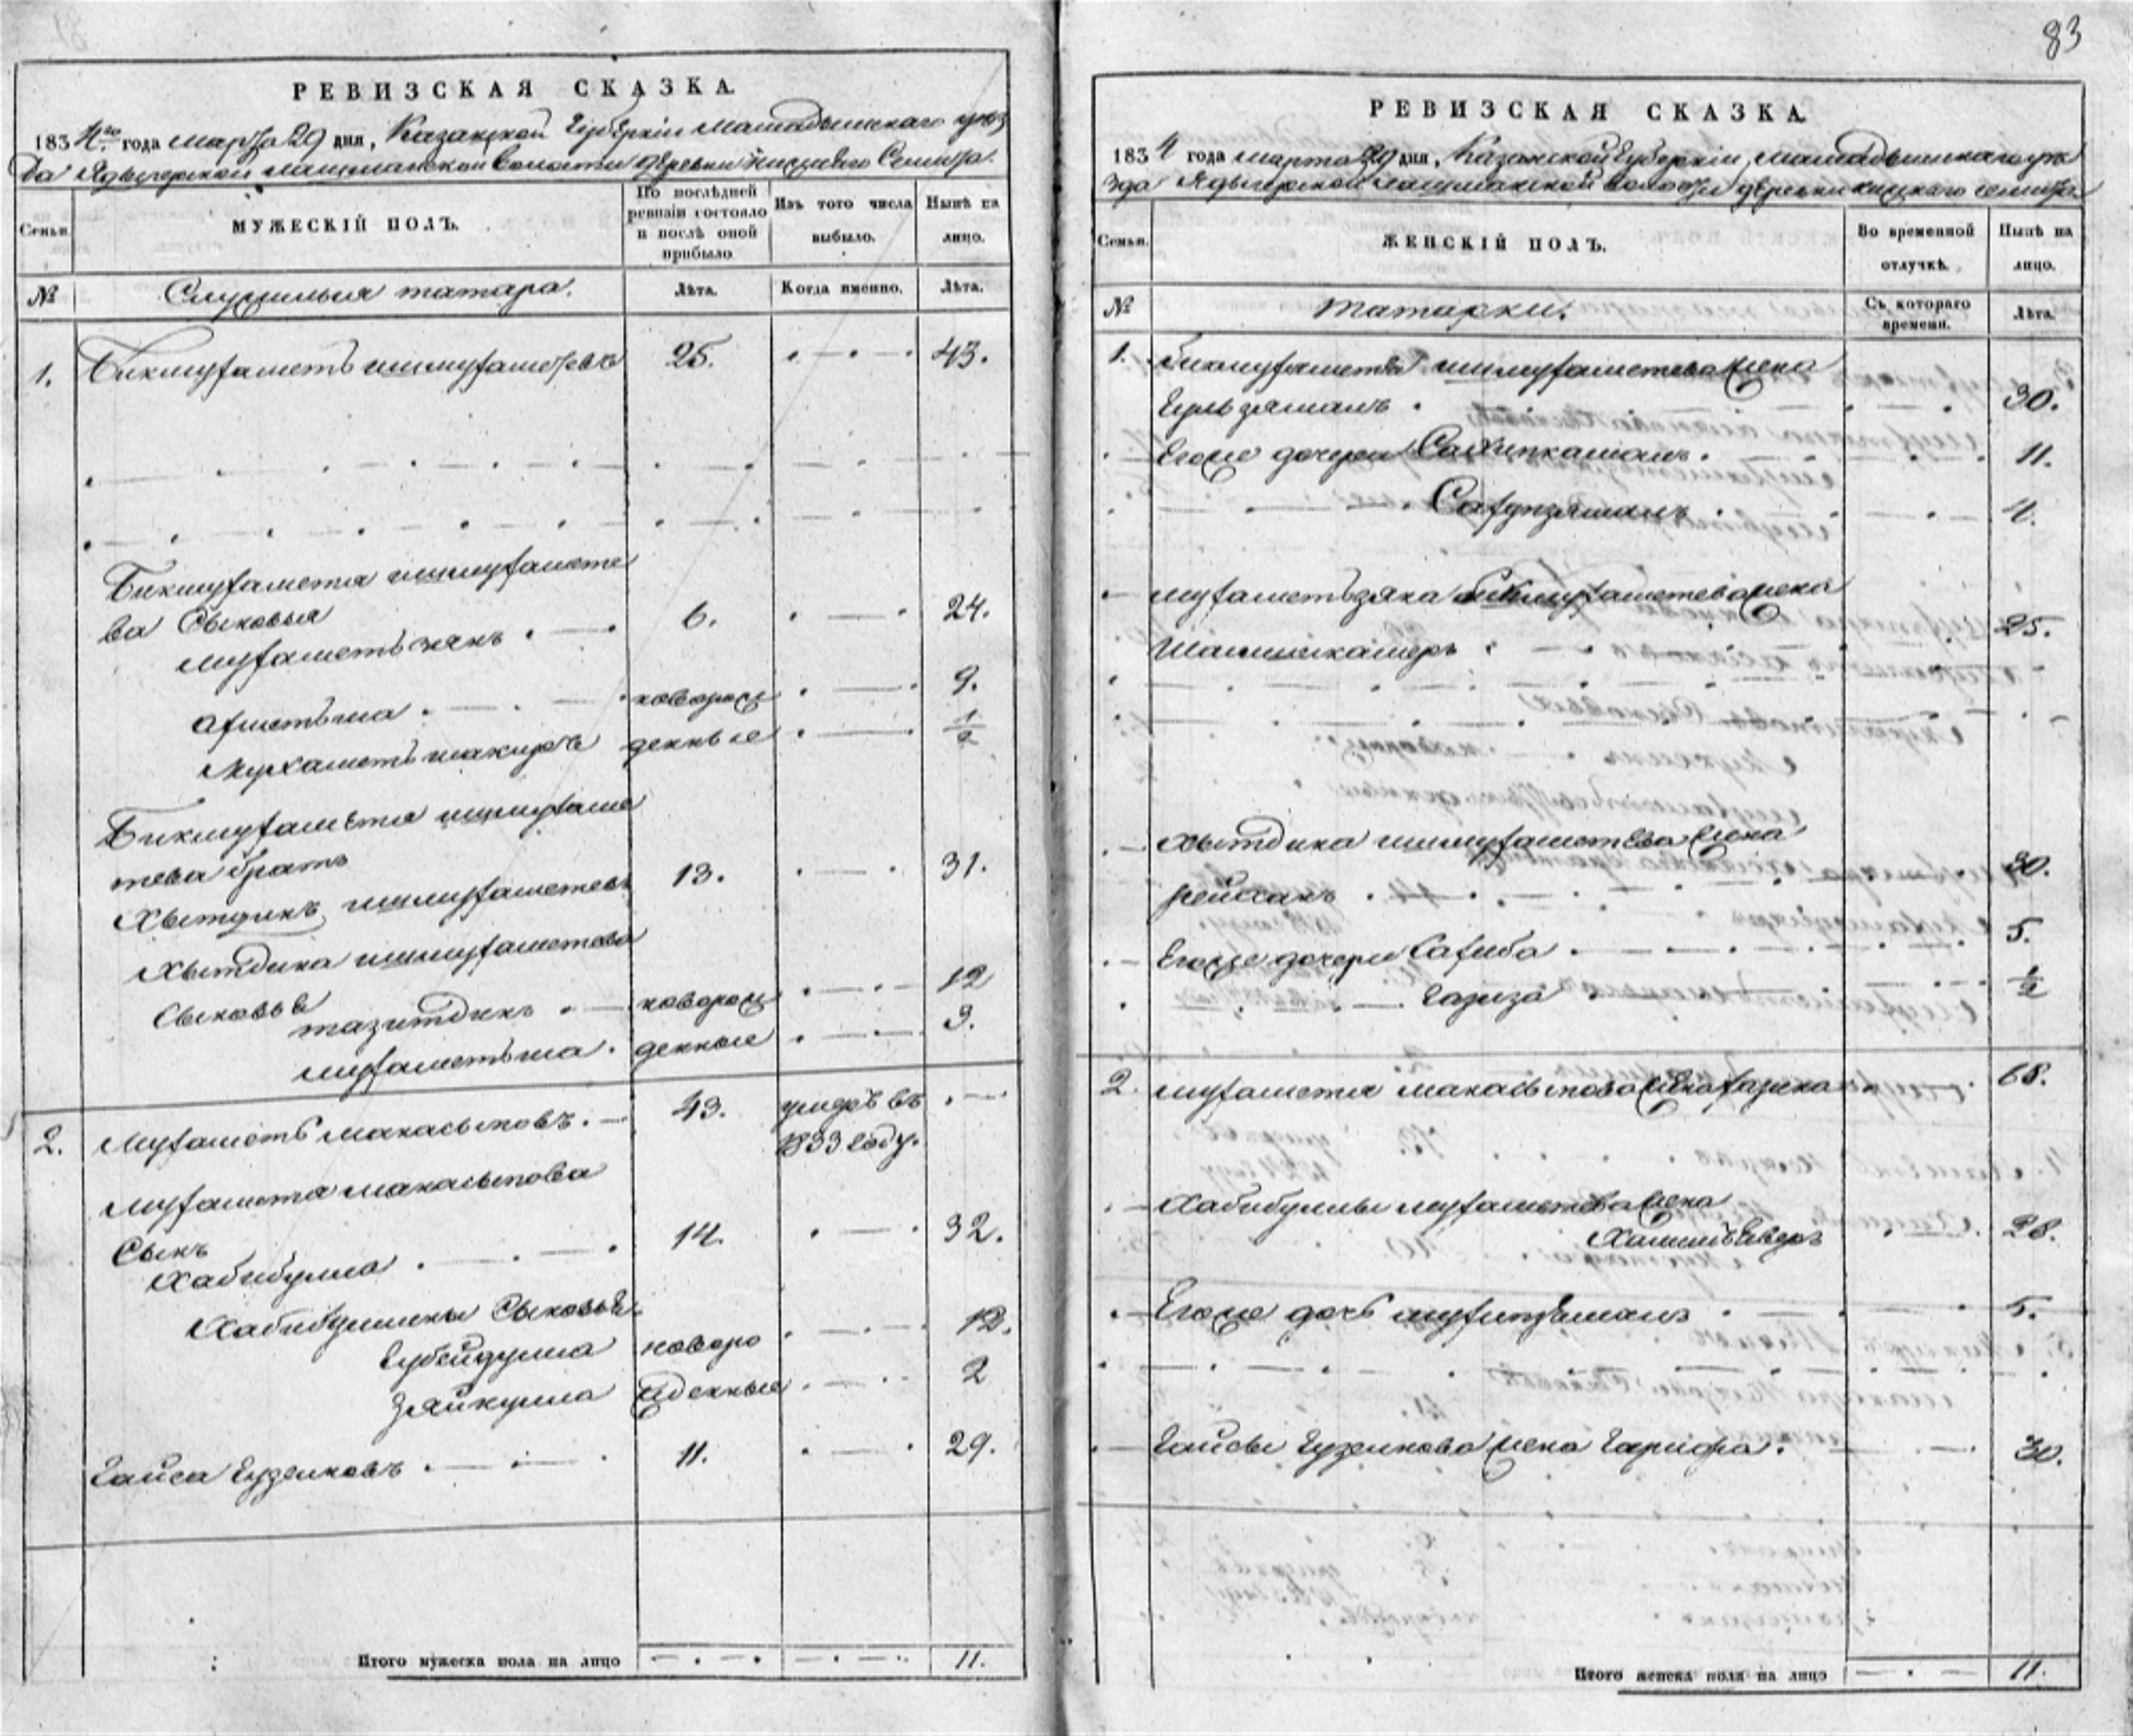 РЕВИЗСКАЯ СКАЗКА.
1834го года марта 29 дня, Казанской Губерніи Мамадышскаго уез
да Ядыгерской лашманской волости деревни нисшяго Сюнира
Семьи.
МУЖЕСКІЙ ПОЛЪ.
По послѣдней ревизіи состояло и послѣ оной прибыло
Изъ того числа выбыло.
Нынѣ на лицо.
№
Служилыя татара.
Лѣта.
Когда именно.
Лѣта.
1. Бикмуфаметъ ишмуфаметевъ 25. 43.
Бикмуфаметя ишмуфамете
ва Сыновья
муфаметьзянъ 6. 24.
Афметьша новорож 9.
Мухаметьшакиръ денные 1/2
Бикмуфаметя ишмуфаме
тева братъ
Хвитдинъ ишмуфаметевъ 13. 31.
Хвитдина ишмуфаметева
Сыновьѣ
тазитдинъ новорож 12
муфаметьша денные 3.
2. Муфаметь макасыповъ. 43. умеръ въ
1833 году.
Муфаметя макасыпова
Сынъ
Хабибулла 14. 32.
Хабибуллины Сыновьѣ
Губейдулла новоро 12.
Зяйнулла жденные 2
Гайса Гузеиновъ 11. 29.
Итого мужеска пола на лицо 11.
83
РЕВИЗСКАЯ СКАЗКА.
1834 года марта 29 дня, Казанской Губерніи, мамадышскаго уѣ
зда Ядыгерской лашманской волости деревни
Семьи.
ЖЕНСКІЙ ПОЛЪ.
Во временной отлучкѣ.
Нынѣ на лицо.
№
татарки.
Съ котораго времени.
Лѣта.
1. бикмуфаметя ишмуфаметева жена
Гульзямалъ 30.
Егоже дочери Сахипкамалъ. 11.
Сафупзямалъ 4.
муфаметьзяна бикмуфаметева жена
Шамшикамеръ 25.
Хвитдина ишмуфаметева жена
рейханъ 30.
Егоже дочери Сафиба 5.
Газиза 1/2
2. муфаметя макасыпова жена фазика 68.
Хабибуллы муфаметева жена
28.
Егоже дочь муфипзямалъ 5.
Гайсы Гузеинова жена Гарифа. 30.
Итого женска пола на лицо 11.